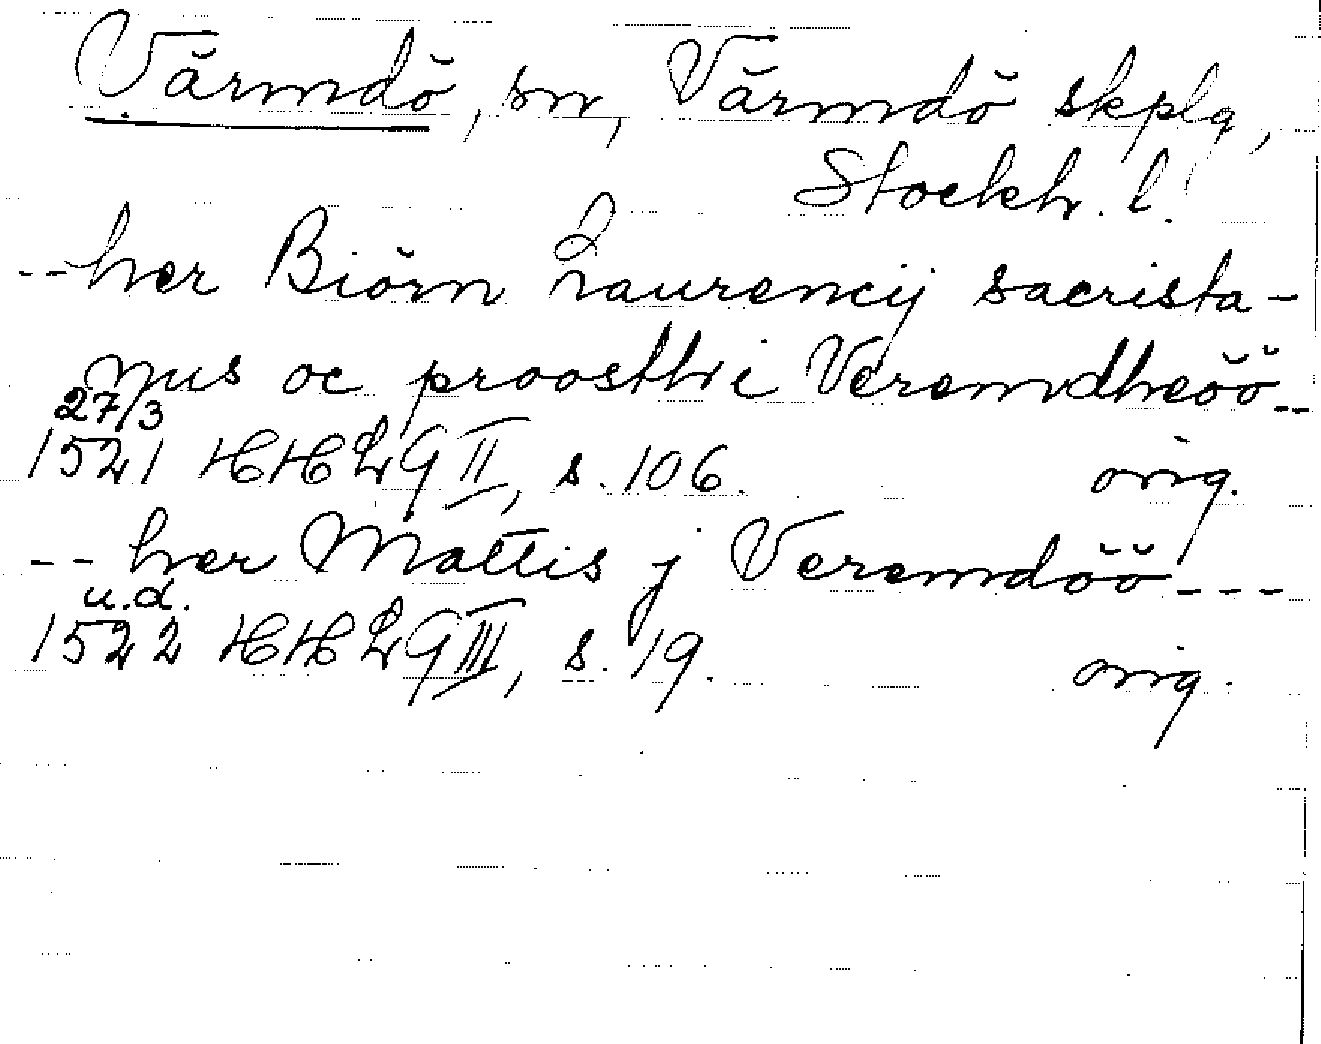 Värmdö, sn, Värmdö skplg,
Stockh. l.
--her Biörn Laurencij sacrista-
nus oc proosthi Veremdheöö--
27/3
1521 HHLQ II, s. 106. orig.
-- her Mattis j Veremdöö---
u.d.
1522 HHLQ III, s. 19. orig.